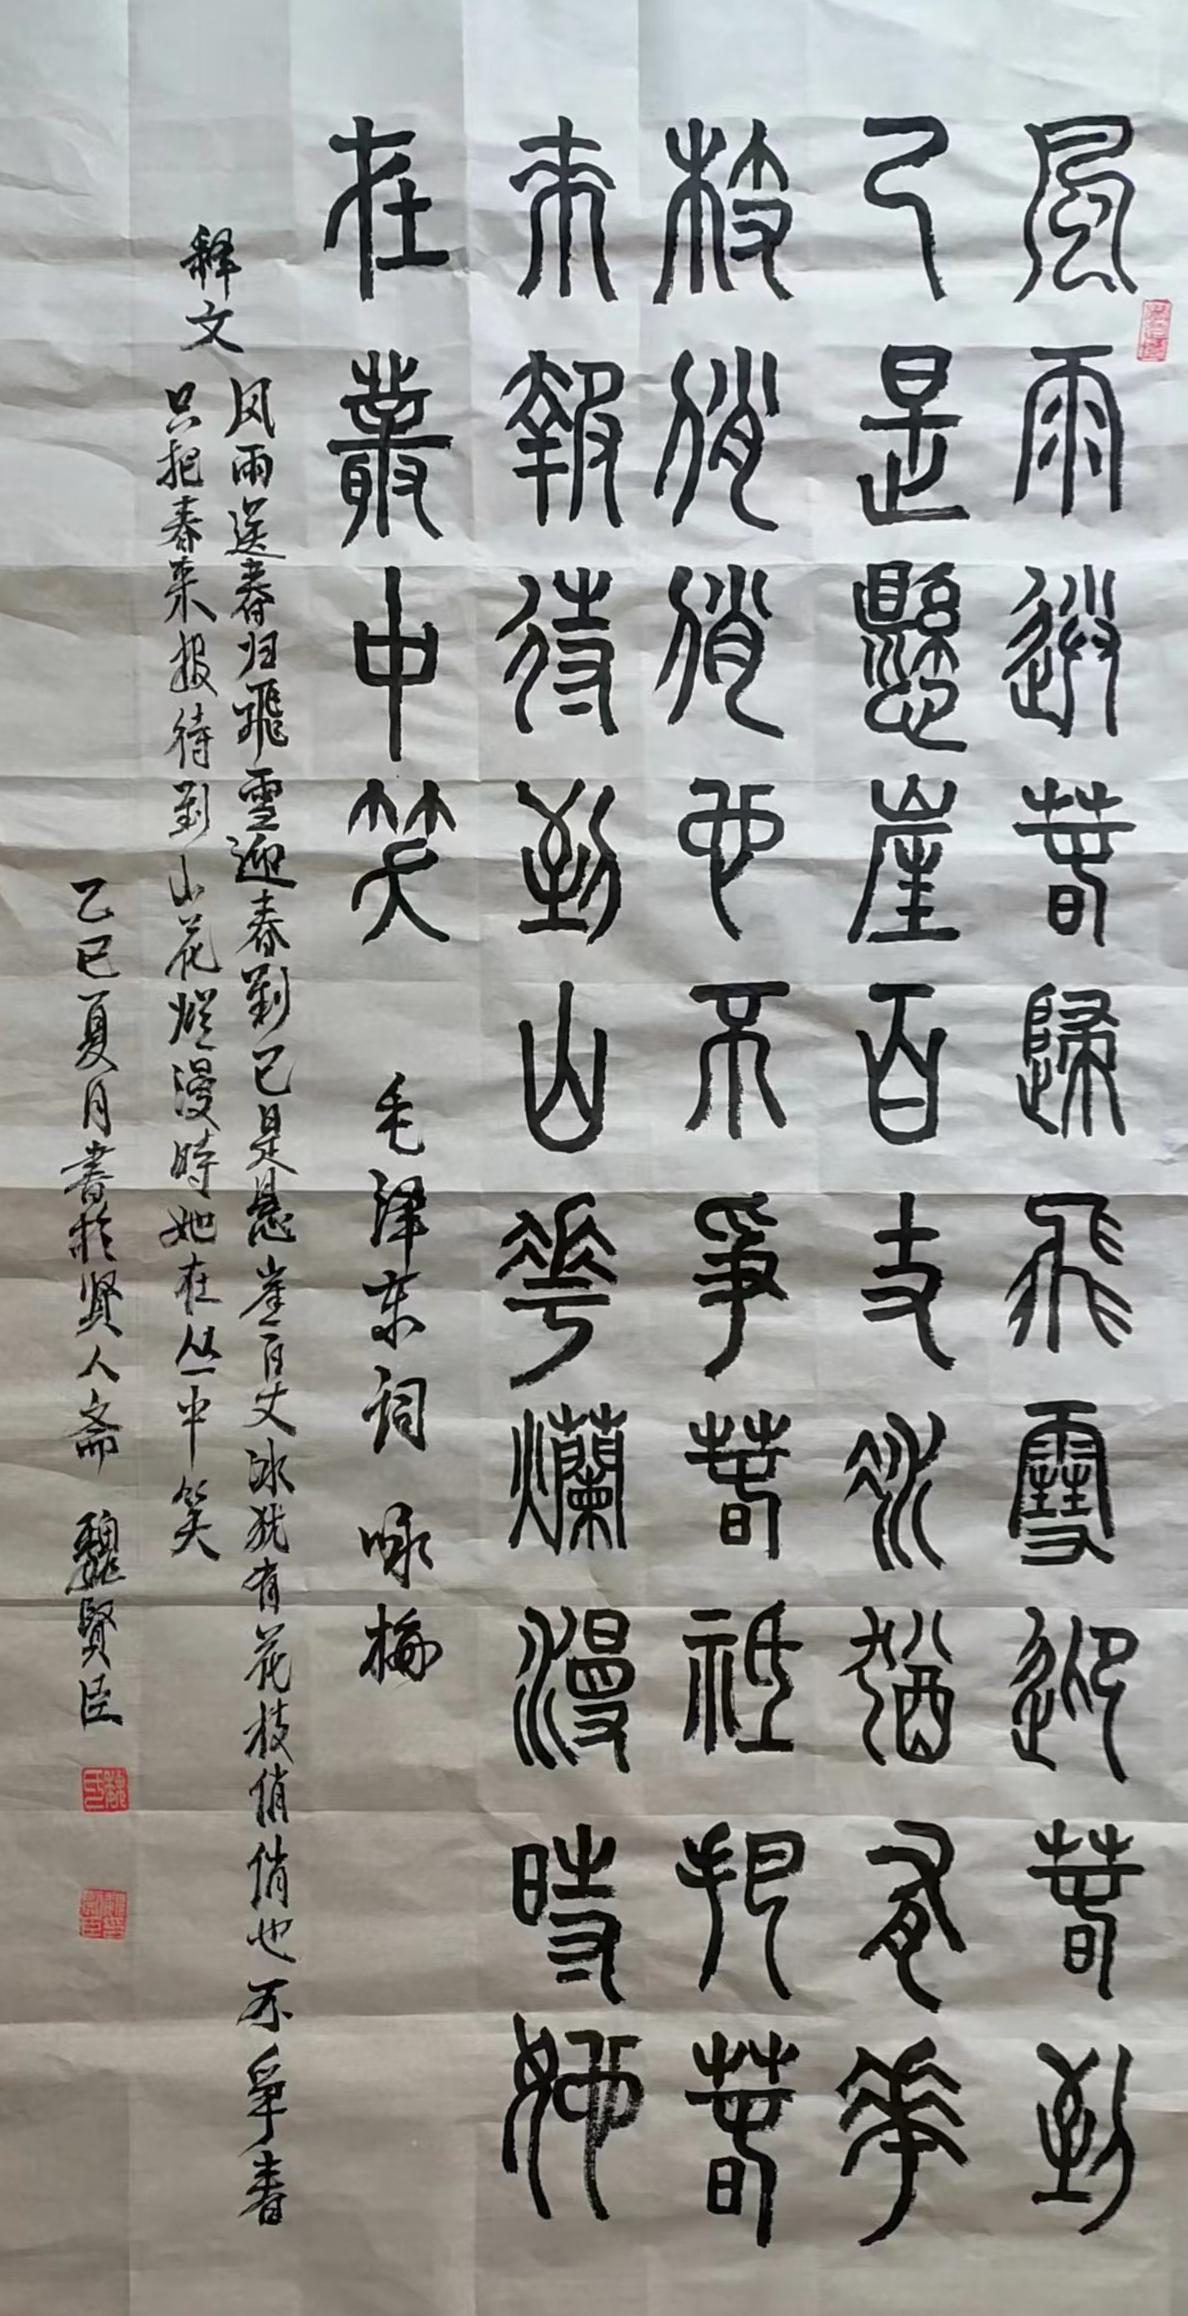 風雨送春歸飛雪迎春到
已是懸崖百丈冰猶有花
枝俏俏也不爭春祇把春
來報待到山花爛漫時她
在叢中笑
毛泽东词 咏梅
释文
风雨送春归飛雪迎春到已是悬崖百丈冰犹有花枝俏俏也不争春
只把春来报待到山花烂漫時她在丛中笑
乙巳夏月書於贤人斋 魏賢臣